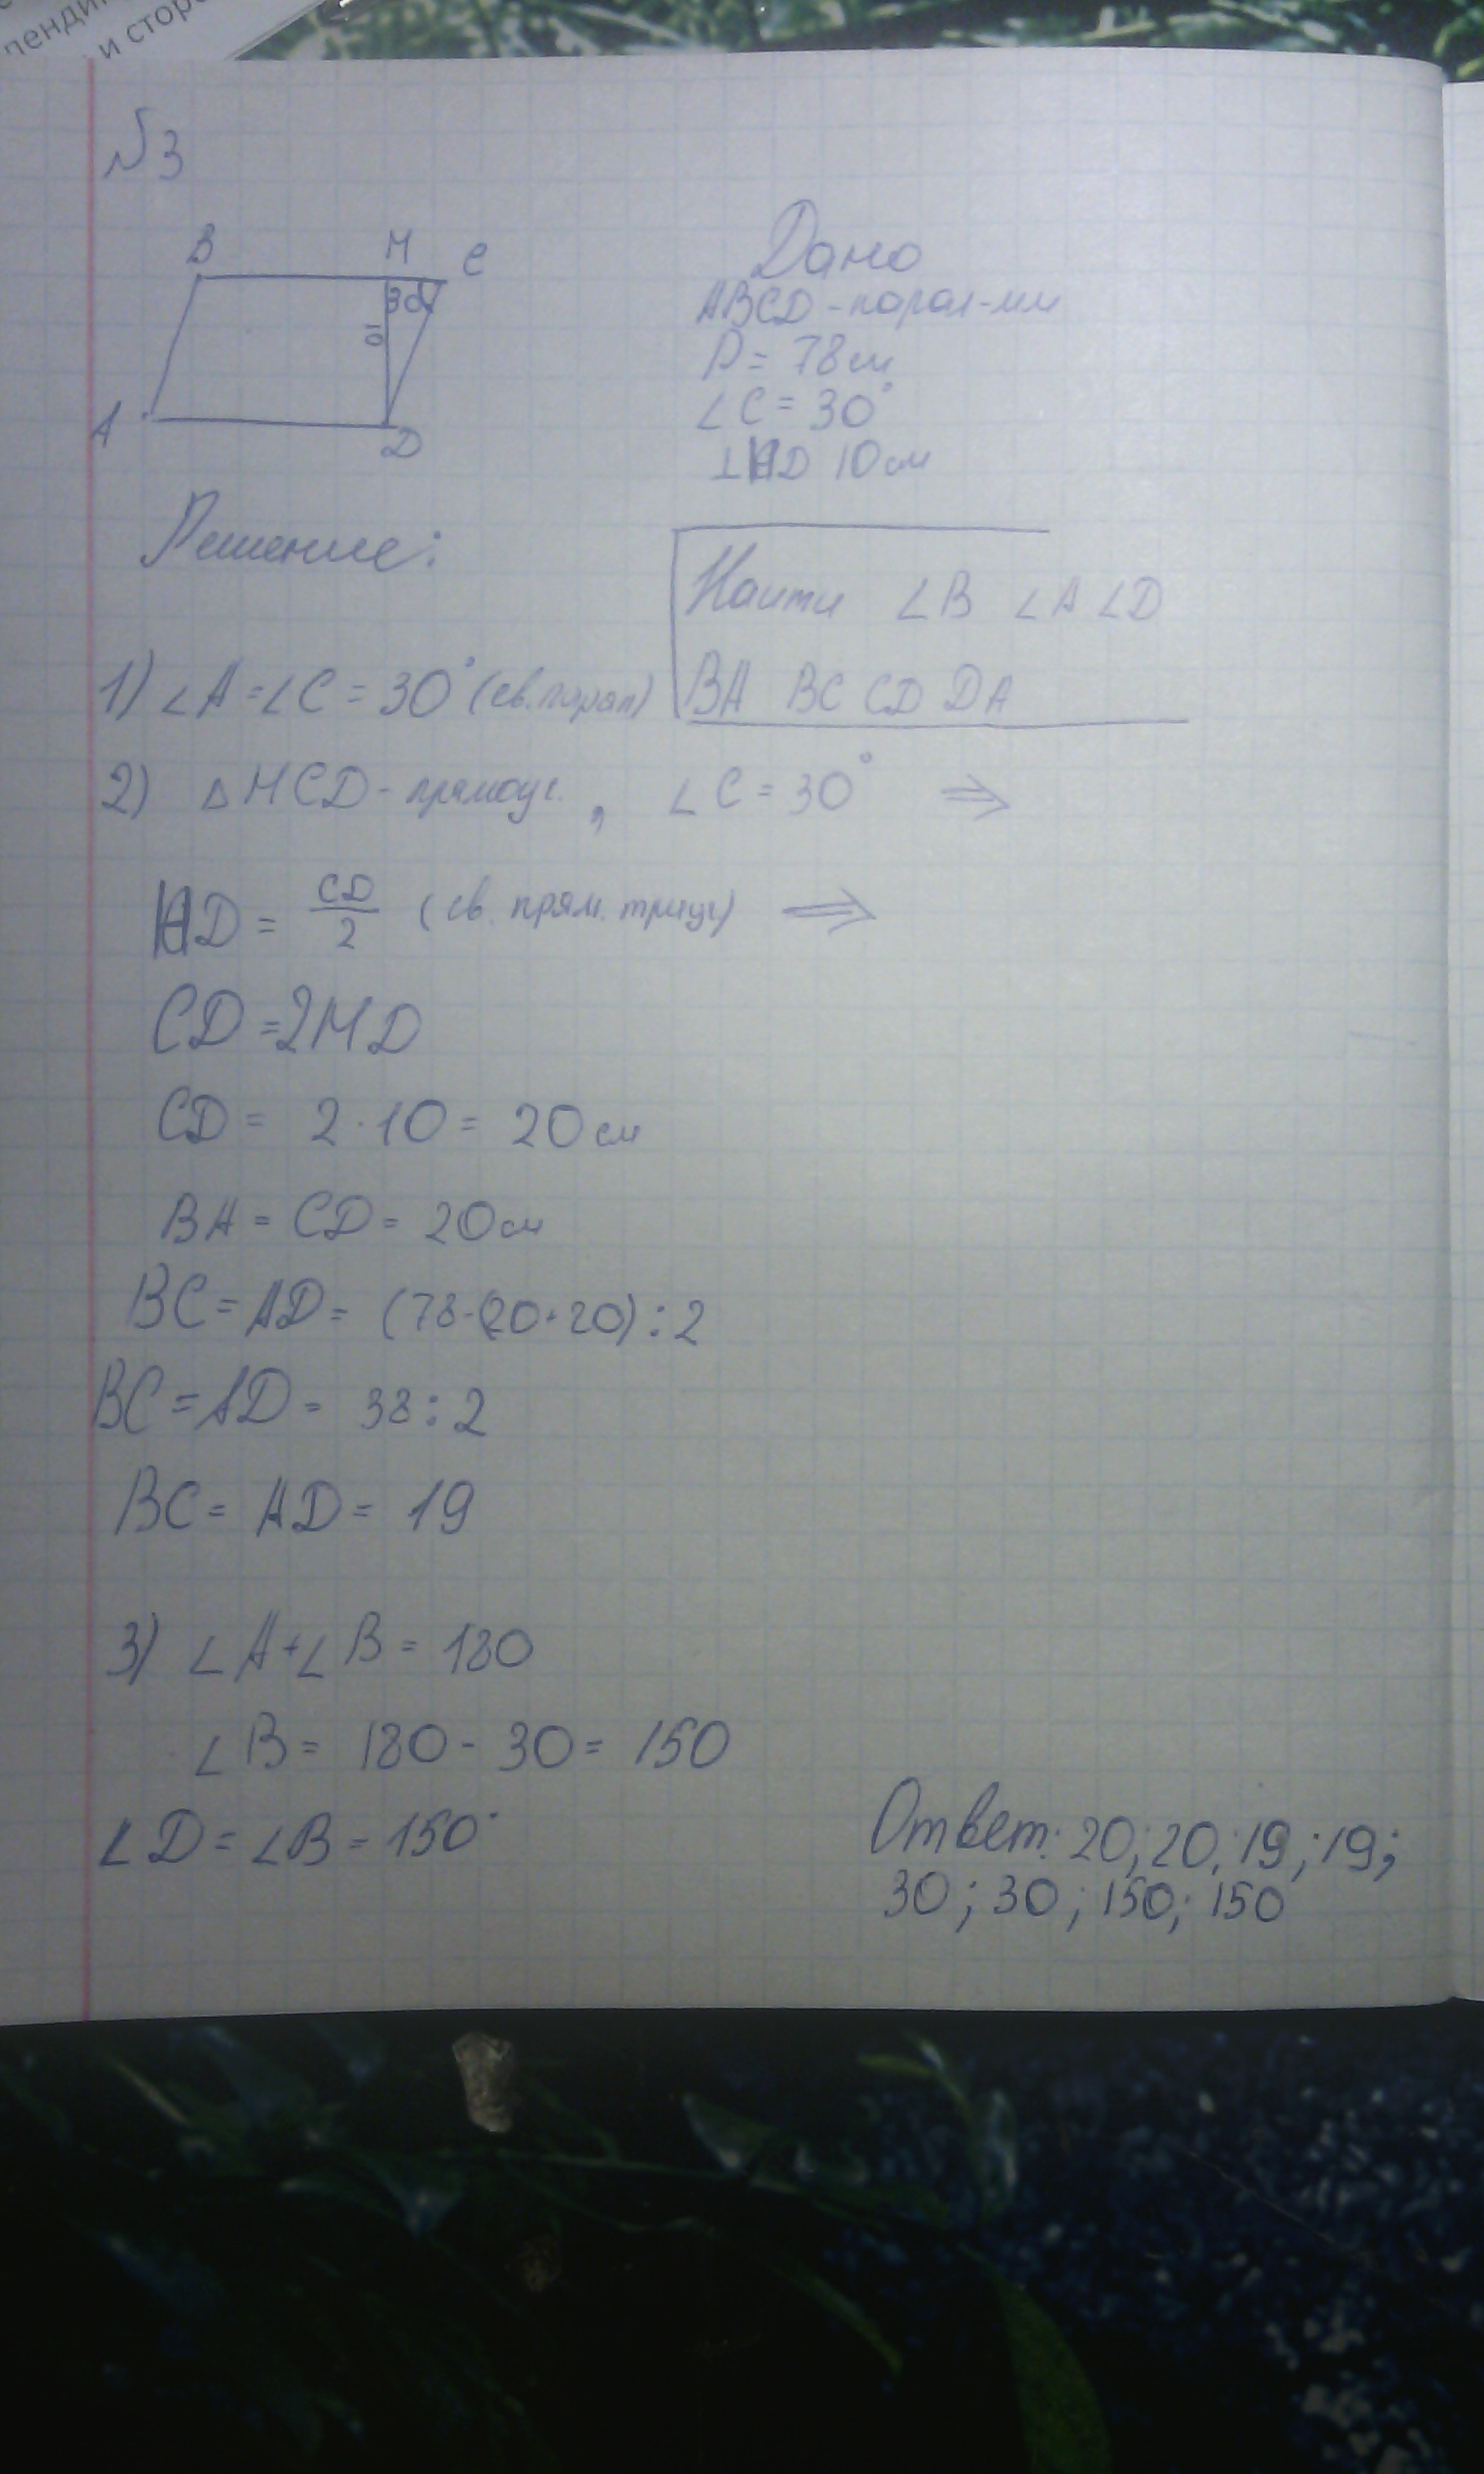 пенди
и стор
№3
B М С
30
10
A D
Дано
ABCD - парал-мм
P = 78 см
∠C = 30°
⊥НD 10 см
Решение:
Наити ∠B ∠A ∠D
BA BC CD DA
1) ∠A = ∠C = 30° (св. парал)
2) △МCD - прямоуг. , ∠C = 30° ⇒
НD = CD/2 (св. прям. триуг) ⇒
CD = 2МD
CD = 2 · 10 = 20 см
BA = CD = 20 см
BC = AD = (78-(20+20) : 2
BC = AD = 38 : 2
BC = AD = 19
3) ∠A + ∠B = 180
∠B = 180 - 30 = 150
∠D = ∠B = 150°
Ответ: 20; 20; 19; 19;
30; 30; 150; 150